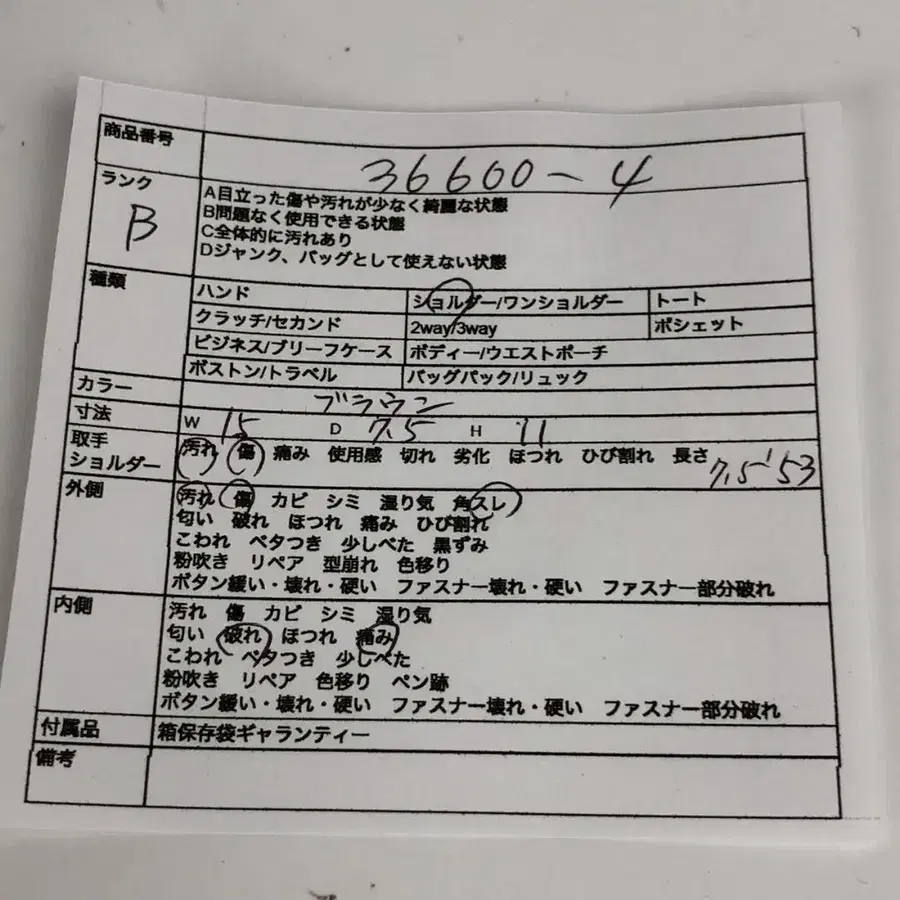 商品番号 36600-4
ランク B
A目立った傷や汚れが少なく綺麗な状態
B問題なく使用できる状態
C全体的に汚れあり
Dジャンク、バッグとして使えない状態
種類 ハンド ショルダー/ワンショルダー トート
クラッチ/セカンド 2way/3way ポシェット
ビジネス/ブリーフケース ボディー/ウエストポーチ
ボストン/トラベル バッグパック/リュック
カラー ブラウン
寸法 W 15 D 7.5 H 11
取手 ショルダー 汚れ 傷 痛み 使用感 切れ 劣化 ほつれ ひび割れ 長さ 7.5' 53
外側 汚れ 傷 カビ シミ 湿り気 角スレ
匂い 破れ ほつれ 痛み ひび割れ
こわれ ベタつき 少しべた 黒ずみ
粉吹き リペア 型崩れ 色移り
ボタン緩い・壊れ・硬い ファスナー壊れ・硬い ファスナー部分破れ
内側 汚れ 傷 カビ シミ 湿り気
匂い 破れ ほつれ 痛み
こわれ ベタつき 少しべた
粉吹き リペア 色移り ペン跡
ボタン緩い・壊れ・硬い ファスナー壊れ・硬い ファスナー部分破れ
付属品 箱保存袋ギャランティー
備考